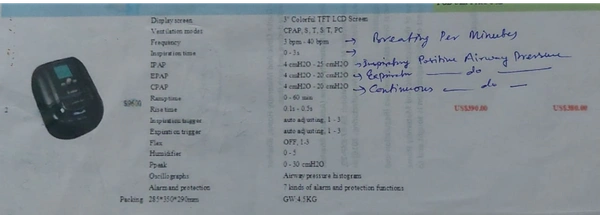 Display screen 3" Colorful TFT LCD Screen
Ventilation modes CPAP, S, T, S/T, PC
Frequency 3 bpm - 40 bpm → Breating Per Minutes
Inspiration time 0 - 3s →
IPAP 4 cmH2O - 25 cmH2O → Inspiratory Positive Airway Pressure
EPAP 4 cmH2O - 20 cmH2O → Expirator — do —
CPAP 4 cmH2O - 20 cmH2O → Continuous — do —
Ramp time 0 - 60 min
2 Rise time 0.1s - 0.5s US$390.00 US$380.00
Inspiration trigger auto adjusting, 1 - 3
Expiration trigger auto adjusting, 1 - 3
Flex OFF, 1-3
Humidifier 0 - 5
Ppeak 0 - 50 cmH2O
Oscillographs Airway pressure histogram
Alarm and protection 7 kinds of alarm and protection functions
Packing 285*350*290mm GW 4.5KG